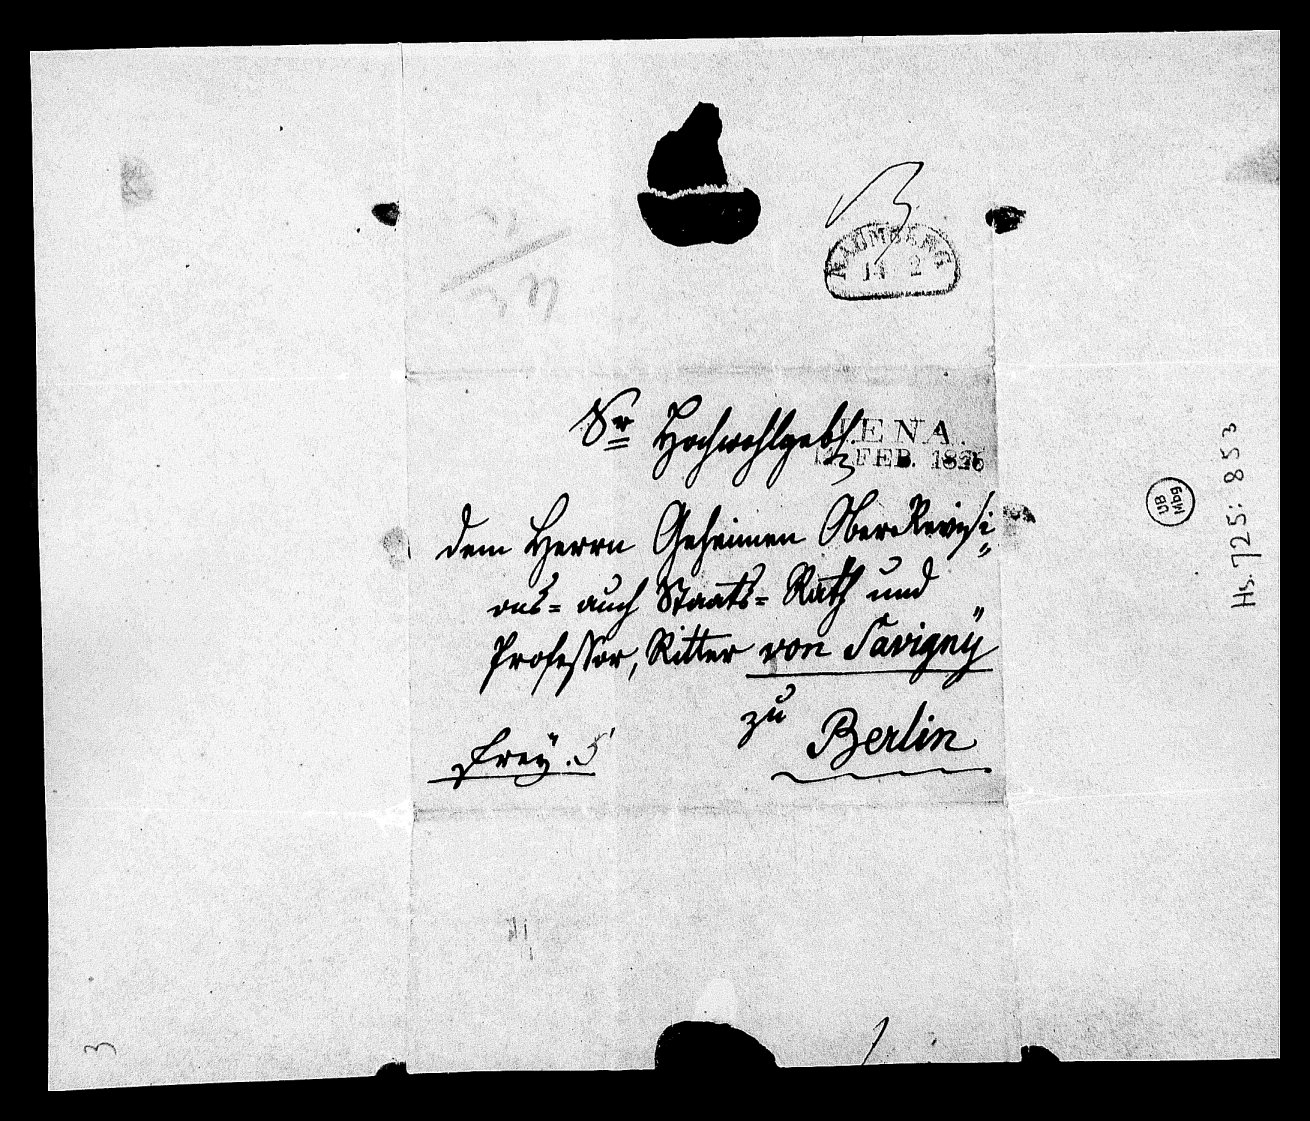 NAUMBERG
14 2
Sr Hochwohlgeb
JENA.
12. FEB. 1825
dem Herrn Geheimen OberRevisi=
ons= auch Staats= Rath und
Professor, Ritter von Savignÿ
zu
Berlin
freÿ.
UB
Mbg
Hs. 725: 853
3